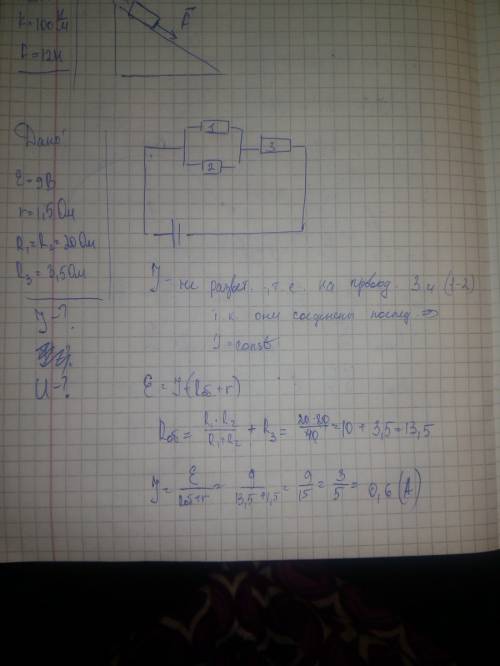 k=100 Н/м
F
A=12Н
Дано:
Ɛ-9В
r=1,5 Ом
R₁=R₂=20 Ом
R₃=3,5 Ом
J-?
U-?
1
2
3
J- не развет. , т. е. на провод. 3 и (1-2)
т.к. они соединены послед. ⇒
J=const
Ɛ=J(Rоб+r)
Rоб= R₁·R₂/R₁+R₂ + R₃= 20·20/40=10+3,5=13,5
J= Ɛ/Rоб+r = 9/13,5+1,5 = 9/15 = 3/5 = 0,6 (A)